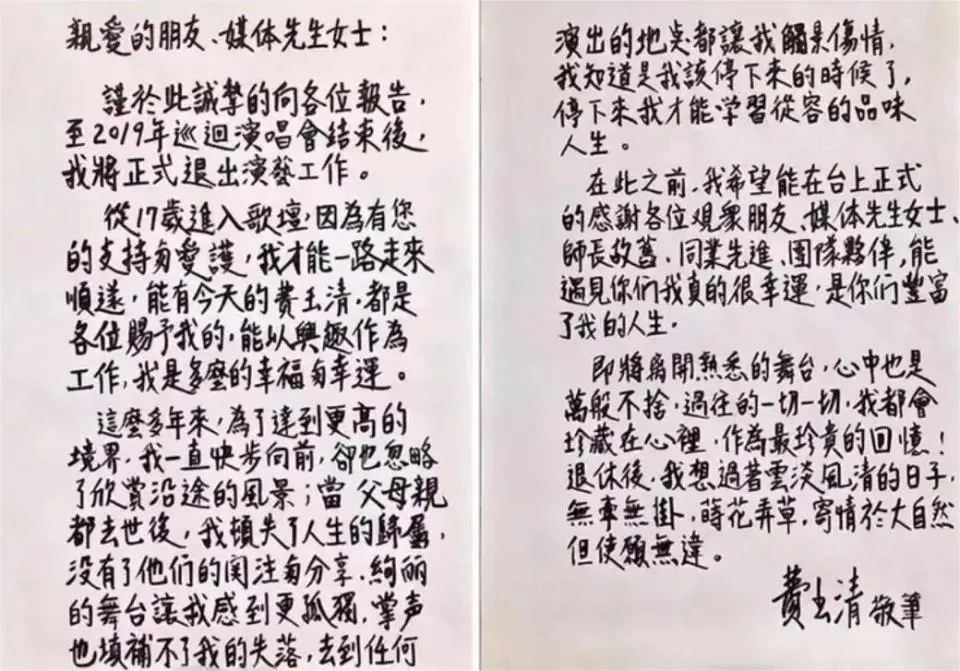 親愛的朋友、媒体先生女士：
謹於此誠摯的向各位報告，
至2019年巡迴演唱會結束後，
我將正式退出演藝工作。
從17歲進入歌壇，因為有您
的支持與愛護，我才能一路走來
順遂，能有今天的費玉清，都是
各位賜予我的，能以興趣作為
工作，我是多麼的幸福與幸運。
這麼多年來，為了達到更高的
境界，我一直快步向前，卻也忽略
了欣賞沿途的風景；當父母親
都去世後，我頓失了人生的歸屬，
沒有了他們的関注與分享，絢丽
的舞台讓我感到更孤獨，掌声
也填補不了我的失落，去到任何
演出的地点都讓我觸景傷情，
我知道是我該停下來的時候了，
停下來我才能学習從容的品味
人生。
在此之前，我希望能在台上正式
的感謝各位观眾朋友、媒体先生女士、
師長故舊、同業先進、团隊夥伴，能
遇見你們我真的很幸運，是你們豐富
了我的人生。
即將离開熟悉的舞台，心中也是
萬般不捨，過往的一切一切，我都會
珍藏在心裡，作為最珍貴的回憶！
退休後，我想過著雲淡風清的日子，
無牽無掛，蒔花弄草，寄情於大自然
但使願無違。
費玉清 敬筆